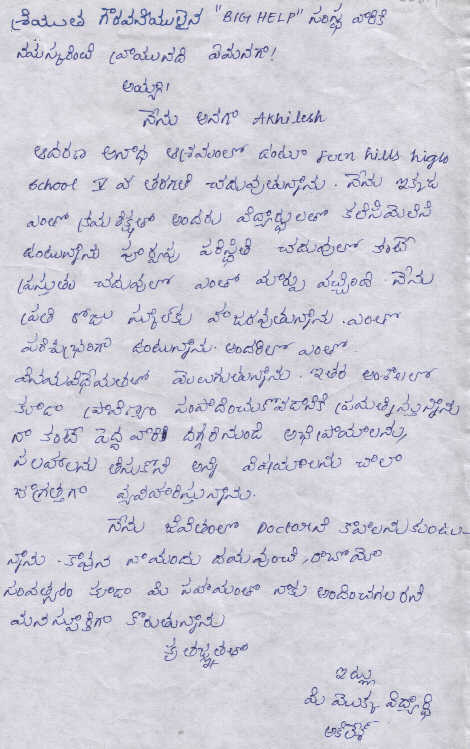 శ్రీయుత గౌరవనీయులైన "BIG HELP" సంస్థ వారికి
నమస్కరించి వ్రాయునది ఏమనగా!
అయ్యా!
నేను అనగా Akhilesh
ఆదరణ అనాధ ఆశ్రమంలో ఉంటూ Fern hills high
school V వ తరగతి చదువుతున్నాను. నేను ఇక్కడ
ఎంతో క్రమశిక్షణతో అందరు విద్యార్థులతో కలిసిమెలిసి
ఉంటున్నాను పూర్వపు పరిస్థితి చదువులో కంటే
ప్రస్తుతం చదువులో ఎంతో మార్పు వచ్చింది. నేను
ప్రతి రోజు స్కూల్‌కు హాజరవుతున్నాను. ఎంతో
పరిశుభ్రంగా ఉంటున్నాను. అందరిలో ఎంతో
వినయవిధేయతలతో మెలుగుతున్నాను. ఇతర అంశాలలో
కూడా ప్రావీణ్యం సంపాదించుకొవడానికి ప్రయత్నిస్తున్నాను
నా కంటే పెద్ద వారి దగ్గరినుండి అభిప్రాయాలను,
సలహాలను తీసుకొని అన్ని విషయాలను చాలా
జాగ్రత్తగా వ్యవహరిస్తున్నాను.
నేను జీవితంలో Doctorని కావాలనుకుంటు-
న్నాను. కావున నాయందు దయవుంచి, రాబోయే
సంవత్సరం కూడా మీ సహాయంతో నాకు అందించగలరని
మనస్పూర్తిగా కోరుతున్నాను
కృతజ్ఞతలతో
ఇట్లు
మీ యొక్క విద్యార్థి
అకిలేష్